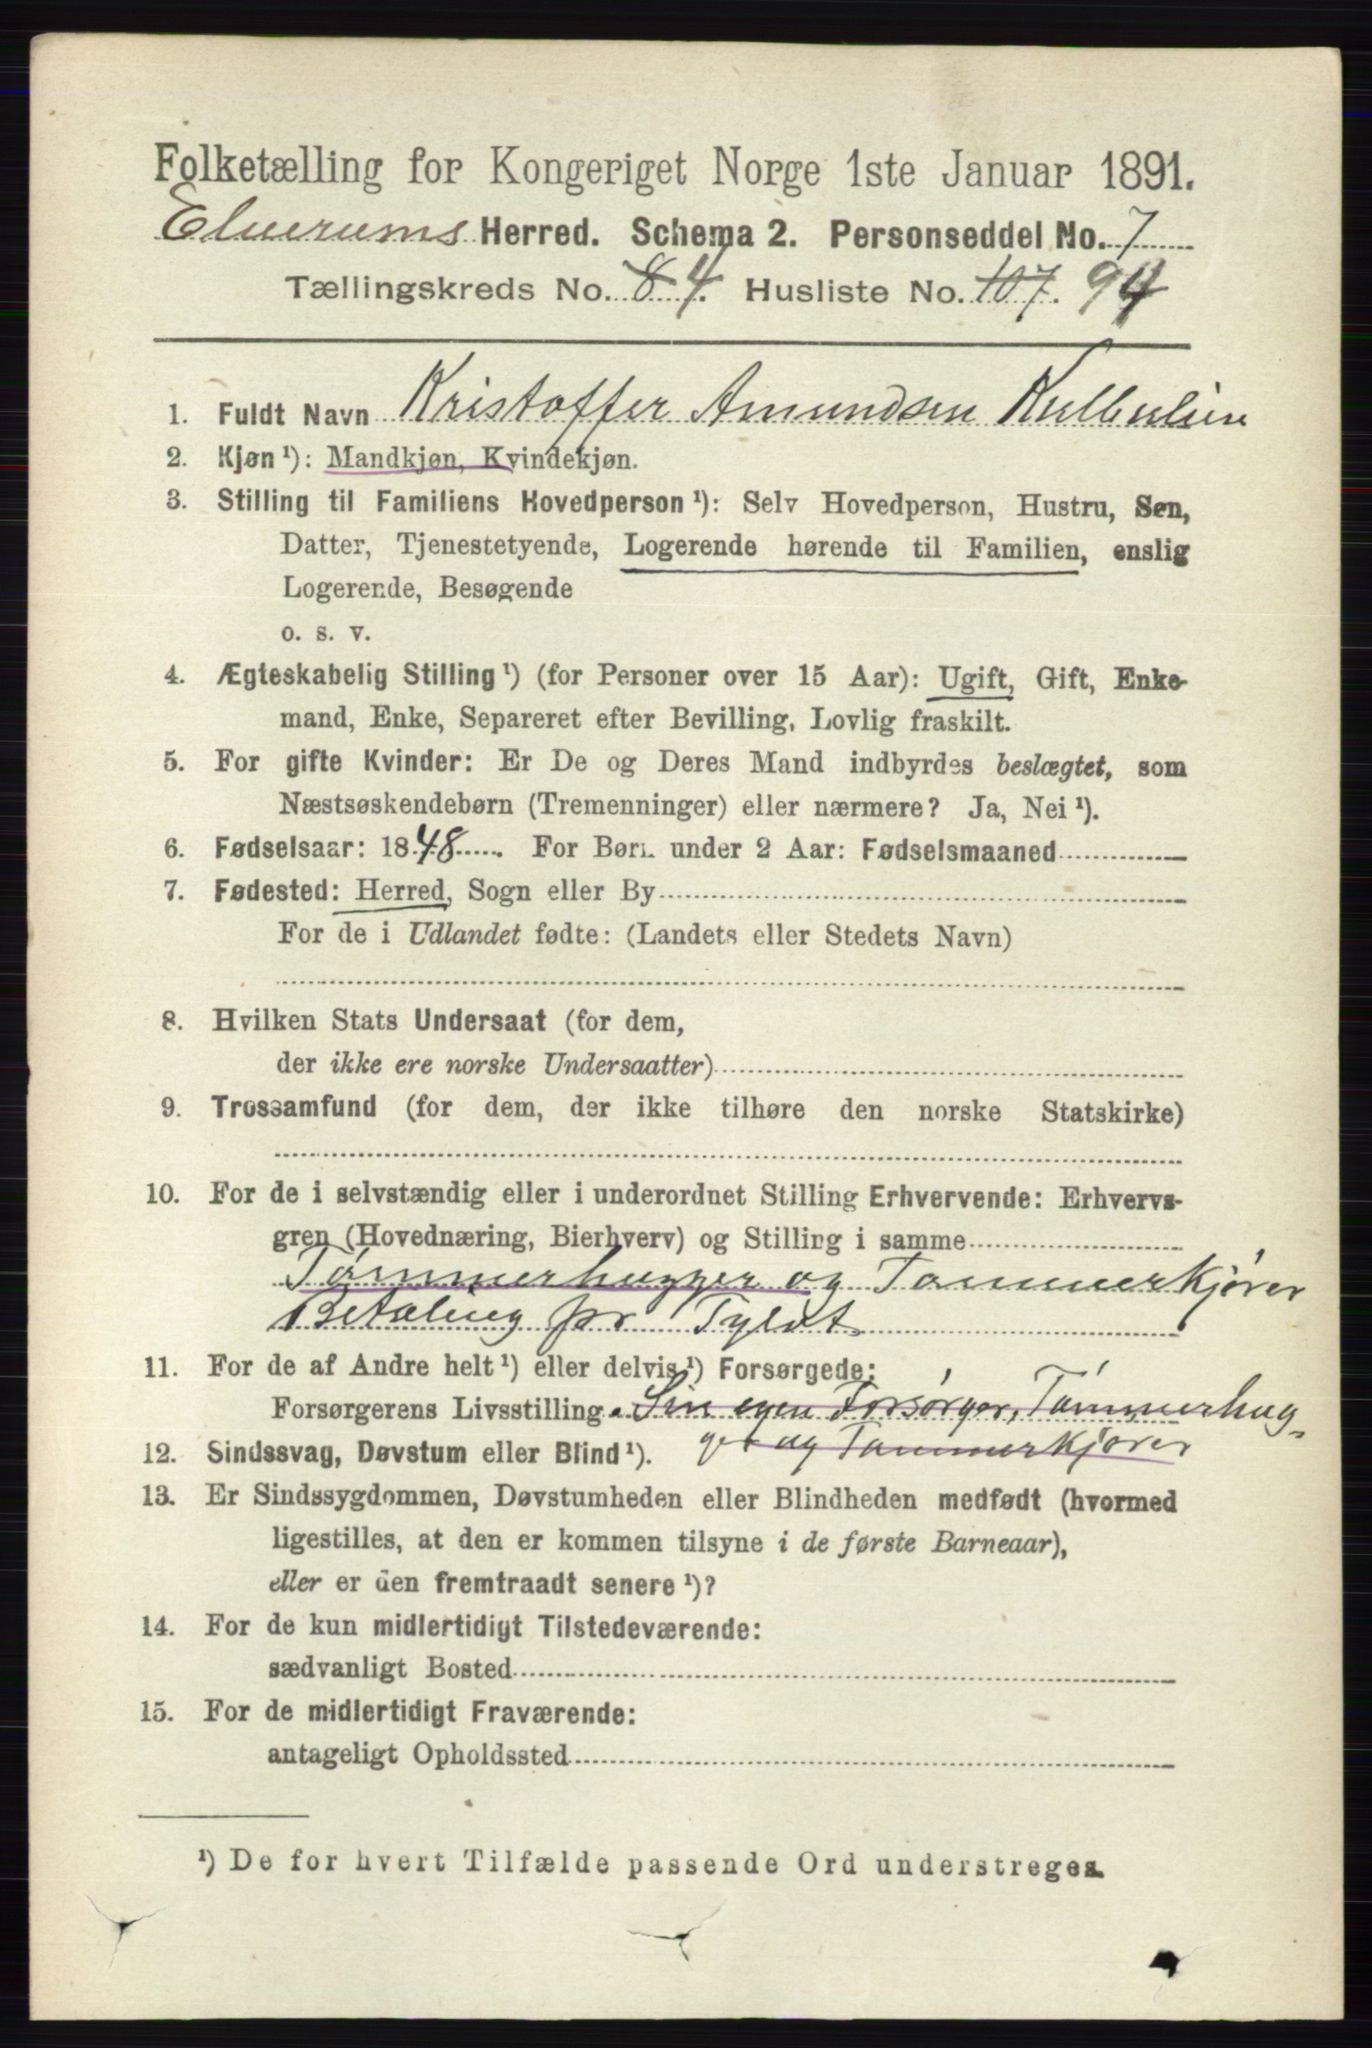 Folketælling for Kongeriget Norge 1ste Januar 1891.
Elverums Herred. Schema 2. Personseddel No. 7
Tællingskreds No. 8 4. Husliste No. 107. 94
1. Fuldt Navn Kristoffer Amundsen
2. Kjøn ¹): Mandkjøn, Kvindekjøn.
3. Stilling til Familiens Hovedperson ¹): Selv Hovedperson, Hustru, Søn,
Datter, Tjenestetyende, Logerende hørende til Familien, enslig
Logerende, Besøgende
o. s. v.
4. Ægteskabelig Stilling ¹) (for Personer over 15 Aar): Ugift, Gift, Enke-
mand, Enke, Separeret efter Bevilling, Lovlig fraskilt.
5. For gifte Kvinder: Er De og Deres Mand indbyrdes beslægtet, som
Næstsøskendebørn (Tremenninger) eller nærmere? Ja, Nei ¹).
6. Fødselsaar: 1848. For Børn under 2 Aar: Fødselsmaaned
7. Fødested: Herred, Sogn eller By
For de i Udlandet fødte: (Landets eller Stedets Navn)
8. Hvilken Stats Undersaat (for dem,
der ikke ere norske Undersaatter)
9. Trossamfund (for dem, der ikke tilhøre den norske Statskirke)
10. For de i selvstændig eller i underordnet Stilling Erhvervende: Erhvervs-
gren (Hovednæring, Bierhverv) og Stilling i samme
Tømmerhugger og Tømmerkjører
Betaling pr Tylvt
11. For de af Andre helt ¹) eller delvis ¹) Forsørgede:
Forsørgerens Livsstilling. Sin egen Forsørger, Tømmerhug-
ger og Tømmerkjører
12. Sindssvag, Døvstum eller Blind ¹).
13. Er Sindssygdommen, Døvstumheden eller Blindheden medfødt (hvormed
ligestilles, at den er kommen tilsyne i de første Barneaar),
eller er den fremtraadt senere ¹)?
14. For de kun midlertidigt Tilstedeværende:
sædvanligt Bosted
15. For de midlertidigt Fraværende:
antageligt Opholdssted
¹) De for hvert Tilfælde passende Ord understreges.